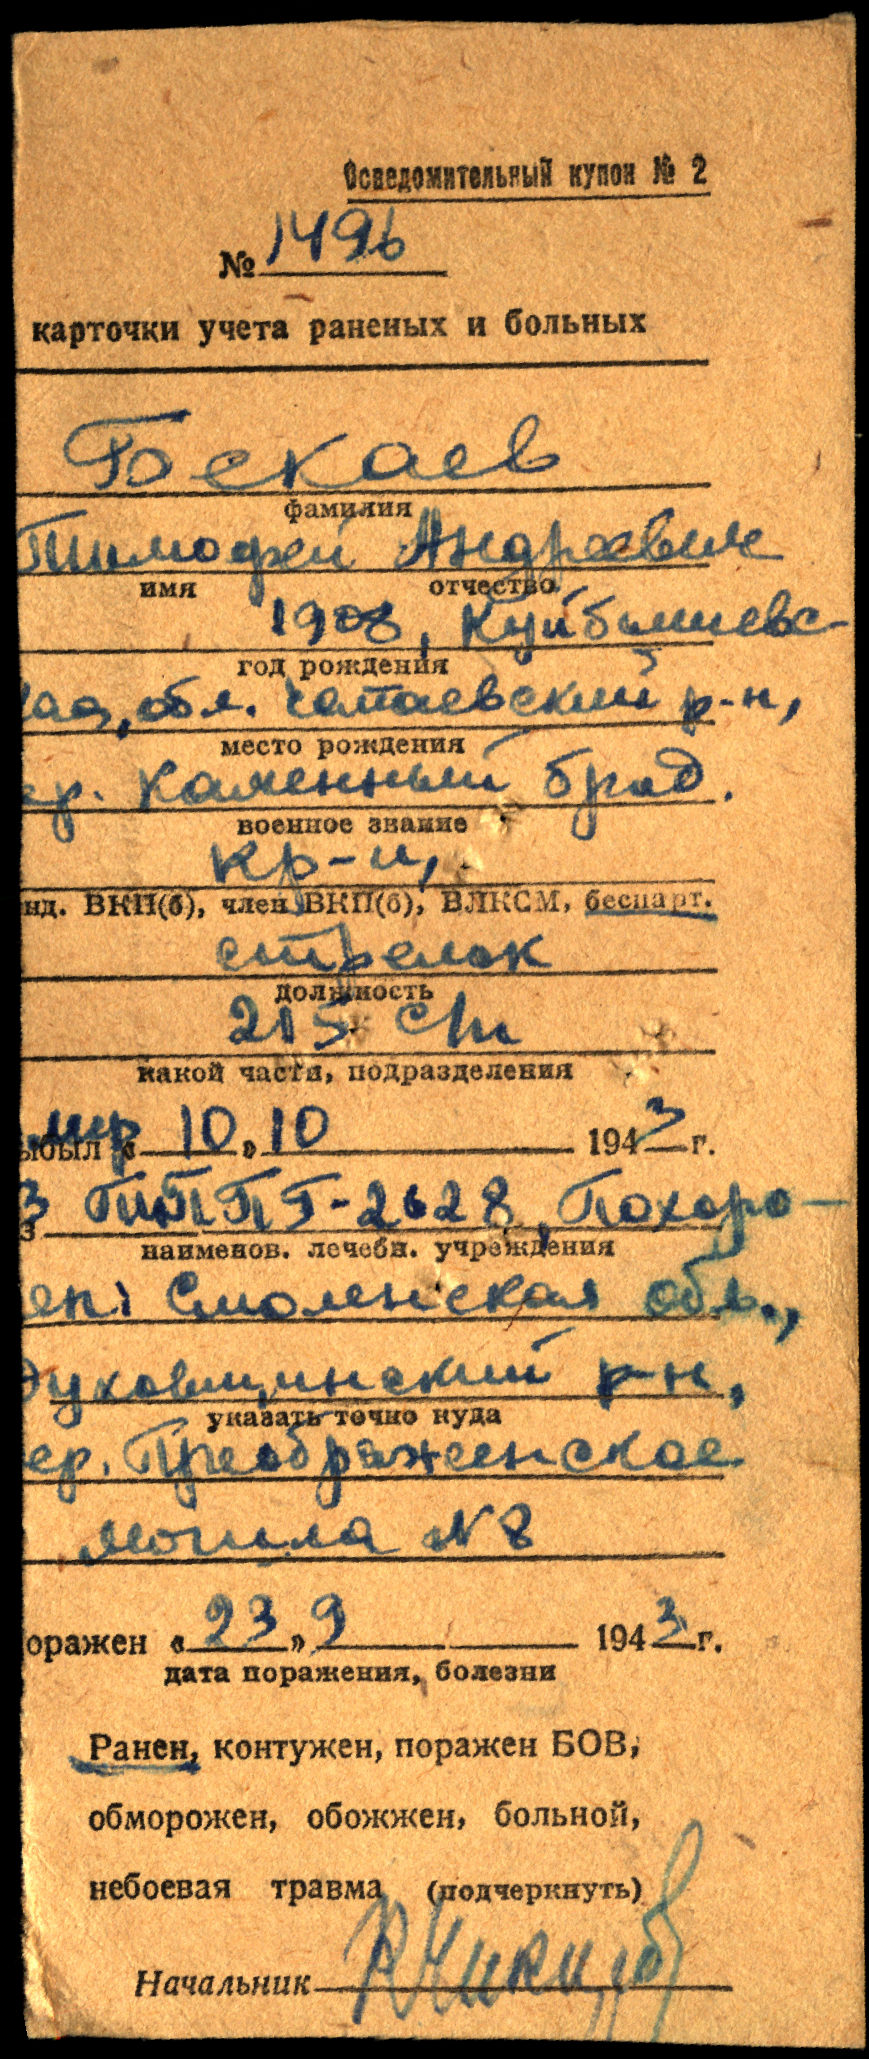 Осведомительный купон № 2
№ 1496
карточки учета раненых и больных
Бекаев
фамилия
Тимофей Андреевич
имя отчество
1908, Куйбышевс-
год рождения
кая, обл. Чапаевский р-н,
место рождения
ер. Каменный брод.
военное звание
кр-ц,
нд. ВКП(б), член ВКП(б), ВЛКСМ, беспарт.
стрелок
должность
215 сп
какой части, подразделения
умер
ыбыл « 10 » 10 1943 г.
з ТППГ-2628, Похоро-
наименов. лечебн. учреждения
ен: Смоленская обл.,
Духовщинский р-н,
указать точно куда
ер. Преображенское
могила N 8
оражен « 23 » 9 1943 г.
дата поражения, болезни
Ранен, контужен, поражен БОВ,
обморожен, обожжен, больной,
небоевая травма (подчеркнуть)
Начальник